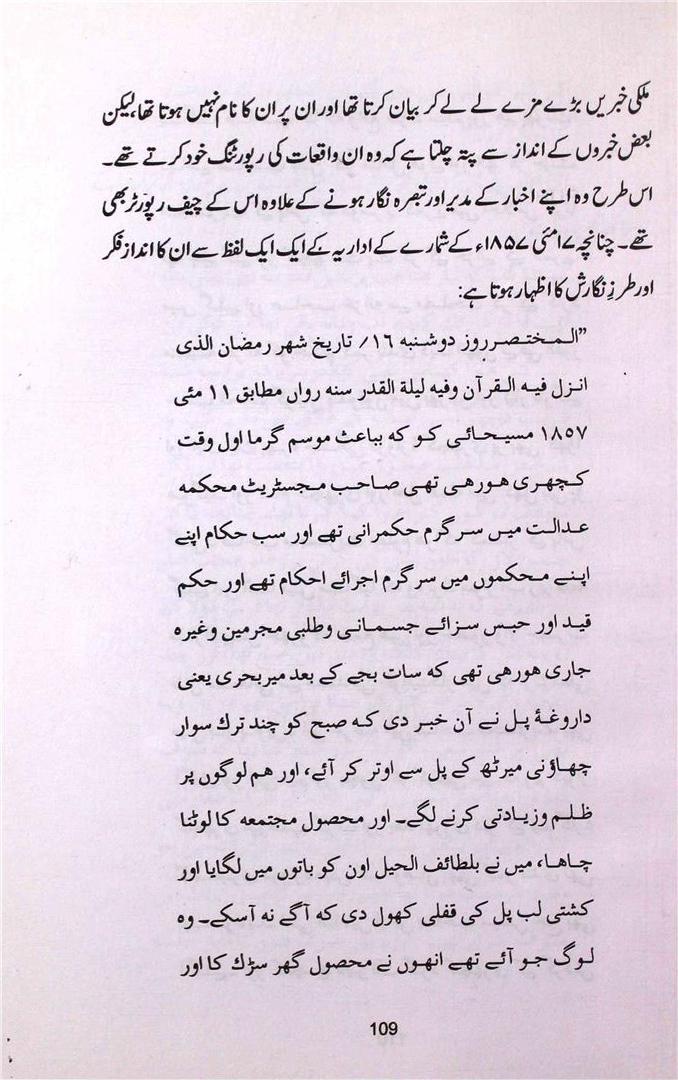 ملکی خبریں بڑے مزے لے لے کر بیان کرتا تھا اور ان پر ان کا نام نہیں ہوتا تھا، لیکن
بعض خبروں کے انداز سے پتہ چلتا ہے کہ وہ ان واقعات کی رپورٹنگ خود کرتے تھے۔
اس طرح وہ اپنے اخبار کے مدیر اور تبصرہ نگار ہونے کے علاوہ اس کے چیف رپورٹر بھی
تھے۔ چنانچہ ۱۷ مئی ۱۸۵۷ء کے شمارے کے اداریہ کے ایک ایک لفظ سے ان کا انداز فکر
اور طرزِ نگارش کا اظہار ہوتا ہے:
”المختصر روز دوشنبہ ۱۶/ تاریخ شهر رمضان الذی
انزل فیه القرآن وفیه لیلة القدر سنه رواں مطابق ۱۱ مئی
۱۸۵۷ مسیحائی کو که بباعث موسم گرما اول وقت
کچهری هورهی تهی صاحب مجسٹریٹ محکمه
عدالت میں سر گرم حکمرانی تهے اور سب حکام اپنے
اپنے محکموں میں سر گرم اجرائے احکام تهے اور حکم
قید اور حبس سزائے جسمانی وطلبی مجرمین وغیره
جاری هورهی تهی که سات بجے کے بعد میربحری یعنی
داروغۂ پل نے آن خبر دی که صبح کو چند ترك سوار
چهاؤنی میرٹھ کے پل سے اوتر کر آئے، اور هم لوگوں پر
ظلم وزیادتی کرنے لگے۔ اور محصول مجتمعه کا لوٹنا
چاها، میں نے بلطائف الحیل اون کو باتوں میں لگایا اور
کشتی لب پل کی قفلی کهول دی که آگے نه آسکے۔ وه
لوگ جو آئے تهے انهوں نے محصول گهر سڑك کا اور
109